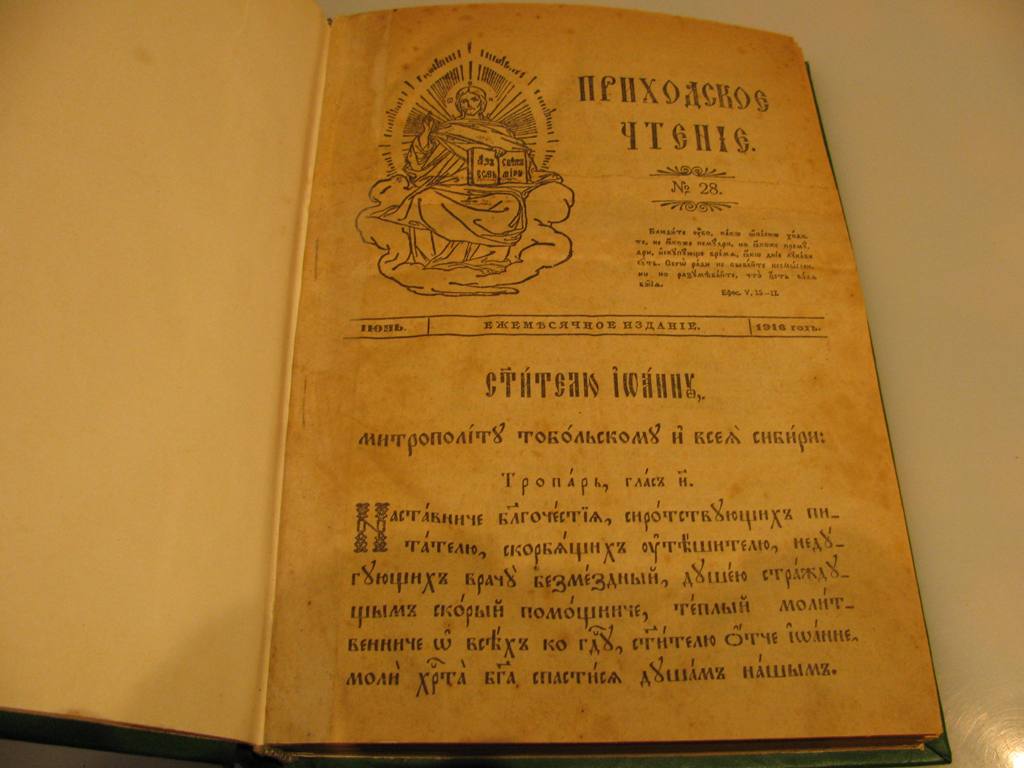 ПРИХОДСКОЕ
ЧТЕНІЕ.
№ 28.
Блюдите ᲂу҆̀бо, ка́кѡ ѡ҆па́снѡ хо́ди-
те, не ꙗ҆́коже немꙋ́дри, но ꙗ҆́коже премꙋ́-
дри, и҆скꙋпꙋ́юще вре́мѧ, ꙗ҆́кѡ дні́е лꙋка́ви
сꙋ́ть. Сегѡ̀ ра́ди не быва́йте несмы́слен-
ни но разꙋмѣва́йте, что̀ є҆́сть во́лѧ
бж҃їѧ.
Ефес. V, 15—17.
А҆́зъ свѣ́тъ
є҆́смь мі́рꙋ
ІЮНЬ. ЕЖЕМѢСЯЧНОЕ ИЗДАНІЕ. 1916 годъ.
СТ҃И́ТЕЛЮ І҆ѠА́ННꙊ,
митрополі́тꙋ тобо́льскомꙋ и҆ всеѧ̀ сиби́ри:
Тропа́рь, гла́съ и҃.
Наста́вниче бл҃гоче́стїѧ, сиро́тствꙋющихъ пи-
та́телю, скорбѧ́щихъ ᲂу҆тѣ́шителю, недꙋ́-
гꙋющихъ врачꙋ̀ безме́здный, дꙋше́ю стра́ждꙋ-
щымъ ско́рый помо́щниче, те́плый моли́т-
венниче ѡ҆ всѣ́хъ ко гдⷭ҇ꙋ, ст҃и́телю ѻ҆́тче і҆ѡа́нне,
молѝ хрⷭ҇та̀ бг҃а спасти́сѧ дꙋша́мъ на́шымъ.